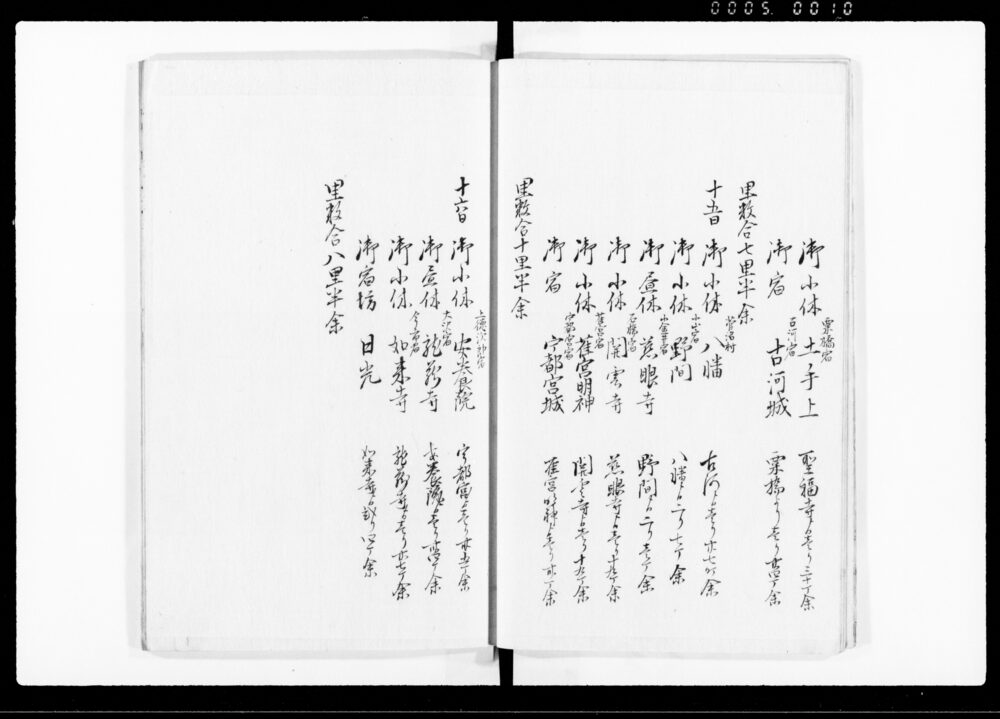 0005 0010
御小休 栗橋宿 土手上 聖福寺より壱り三十丁余
御宿 古河宿 古河城 栗橋より壱り
里数合七里半余
十五日 御小休 八幡 古河より壱り廿七丁余
御小休 小山宿 野間 八幡より二り七丁余
御昼休 小金井宿 慈眼寺 野間より二り壱丁余
御小休 石橋宿 開雲寺 慈眼寺より壱り十九丁余
御小休 雀宮宿 雀宮明神 開雲寺より壱り十九丁余
御宿 宇都宮宿 宇都宮城 雀宮明神より壱り
里数合十里半余
十六日 御小休 上徳次郎宿 宇都宮より壱り
御昼休 大沢宿 龍蔵寺
御小休 今市宿 如来寺 龍蔵寺より壱り廿七丁余
御宿坊 日光 如来寺より弐り四丁余
里数合八里半余